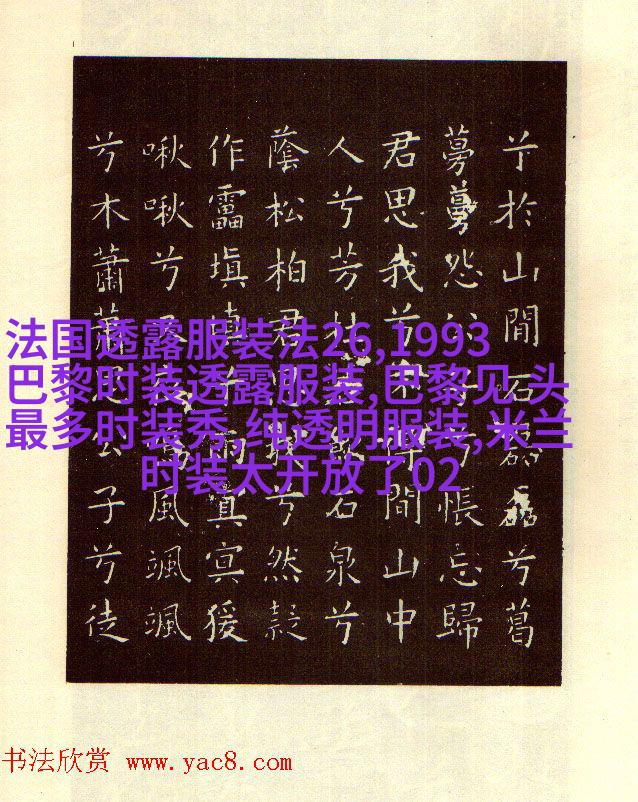 兮於山間石磊磊兮葛
蔓蔓怨公子兮悵忘歸
君思我兮不得間山中
人兮芳杜若飲石泉兮
蔭松柏君思我兮然疑
作靁填填兮雨冥冥猨
啾啾兮又鳴風颯颯
兮木蕭蕭思公子兮徒
法国透露服装法26,1993
巴黎时装透露服装,巴黎见 头
最多时装秀,纯透明服装,米兰
时装太开放了02
书法欣赏 www.yac8.com